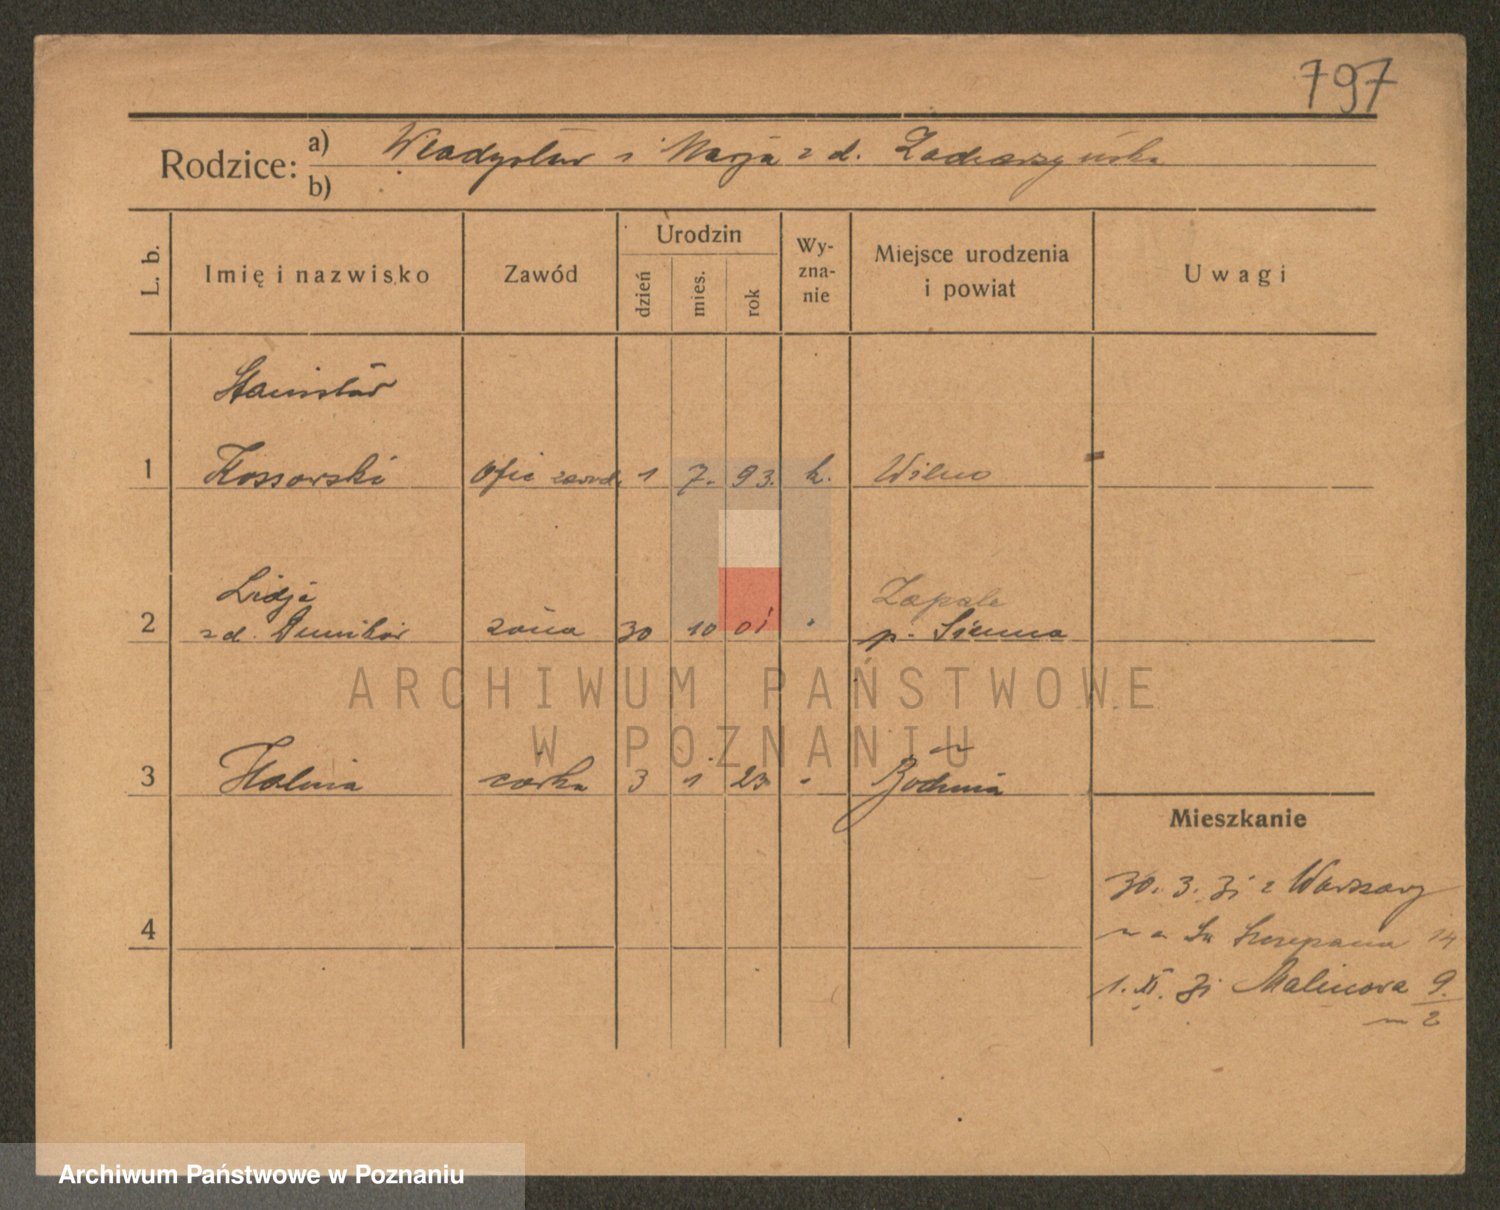 797
Rodzice: a) Władysław i Marja z d. Zacharzyńska
b)
L. b.
Imię i nazwisko
Zawód
Urodzin
dzień
mies.
rok
Wy-
zna-
nie
Miejsce urodzenia
i powiat
Uwagi
Stanisław
1 Kossowski Ofic zawod. 1 7. 93. k. Wilno
Lidja Zapale
2 z d. żona 30 10 01 " p. Sienna
3 Halina córka 3 1 23 " Bochnia
Mieszkanie
30. 3. 31 z Warszawy
4
na Św Szczepana 14
1. XI. 31 Malinowa 9.
m 2
ARCHIWUM PAŃSTWOWE
W POZNANIU
Archiwum Państwowe w Poznaniu